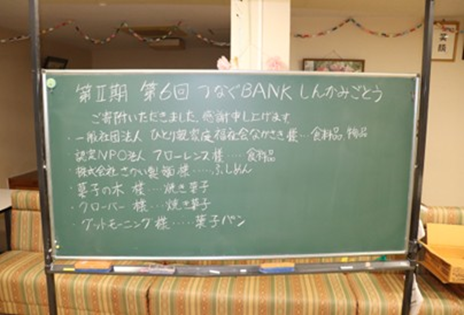 第Ⅱ期 第6回 つなぐBANK しんかみごとう
ご寄附いただきました。感謝申し上げます
・一般社団法人 ひとり親家庭福祉会ながさき 様…食料品、物品
・認定NPO法人 フローレンス 様….食料品
・株式会社 さかい製麺 様……ふしめん
・菓子の木 様….焼き菓子
・クローバー 様….焼き菓子
・グットモーニング 様…..菓子パン
笑顔